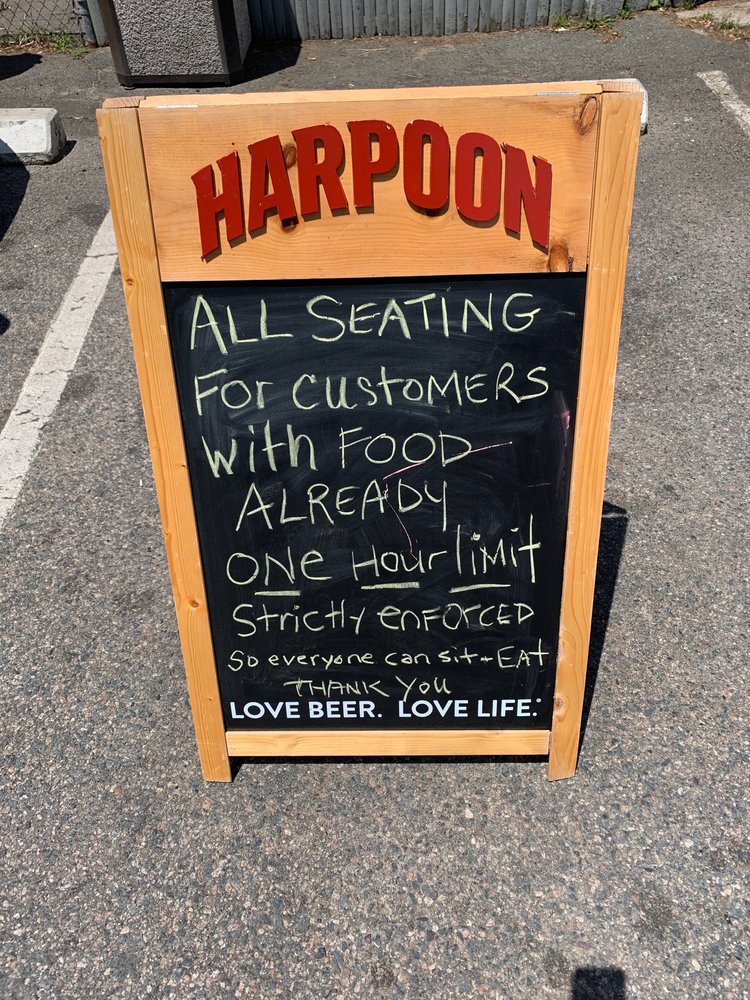 HARPOON
ALL SEATING
For customers
with FOOD
ALREADY
ONE Hour limit
Strictly enforced
So everyone can sit + EAT
THANK YOU
LOVE BEER. LOVE LIFE.®